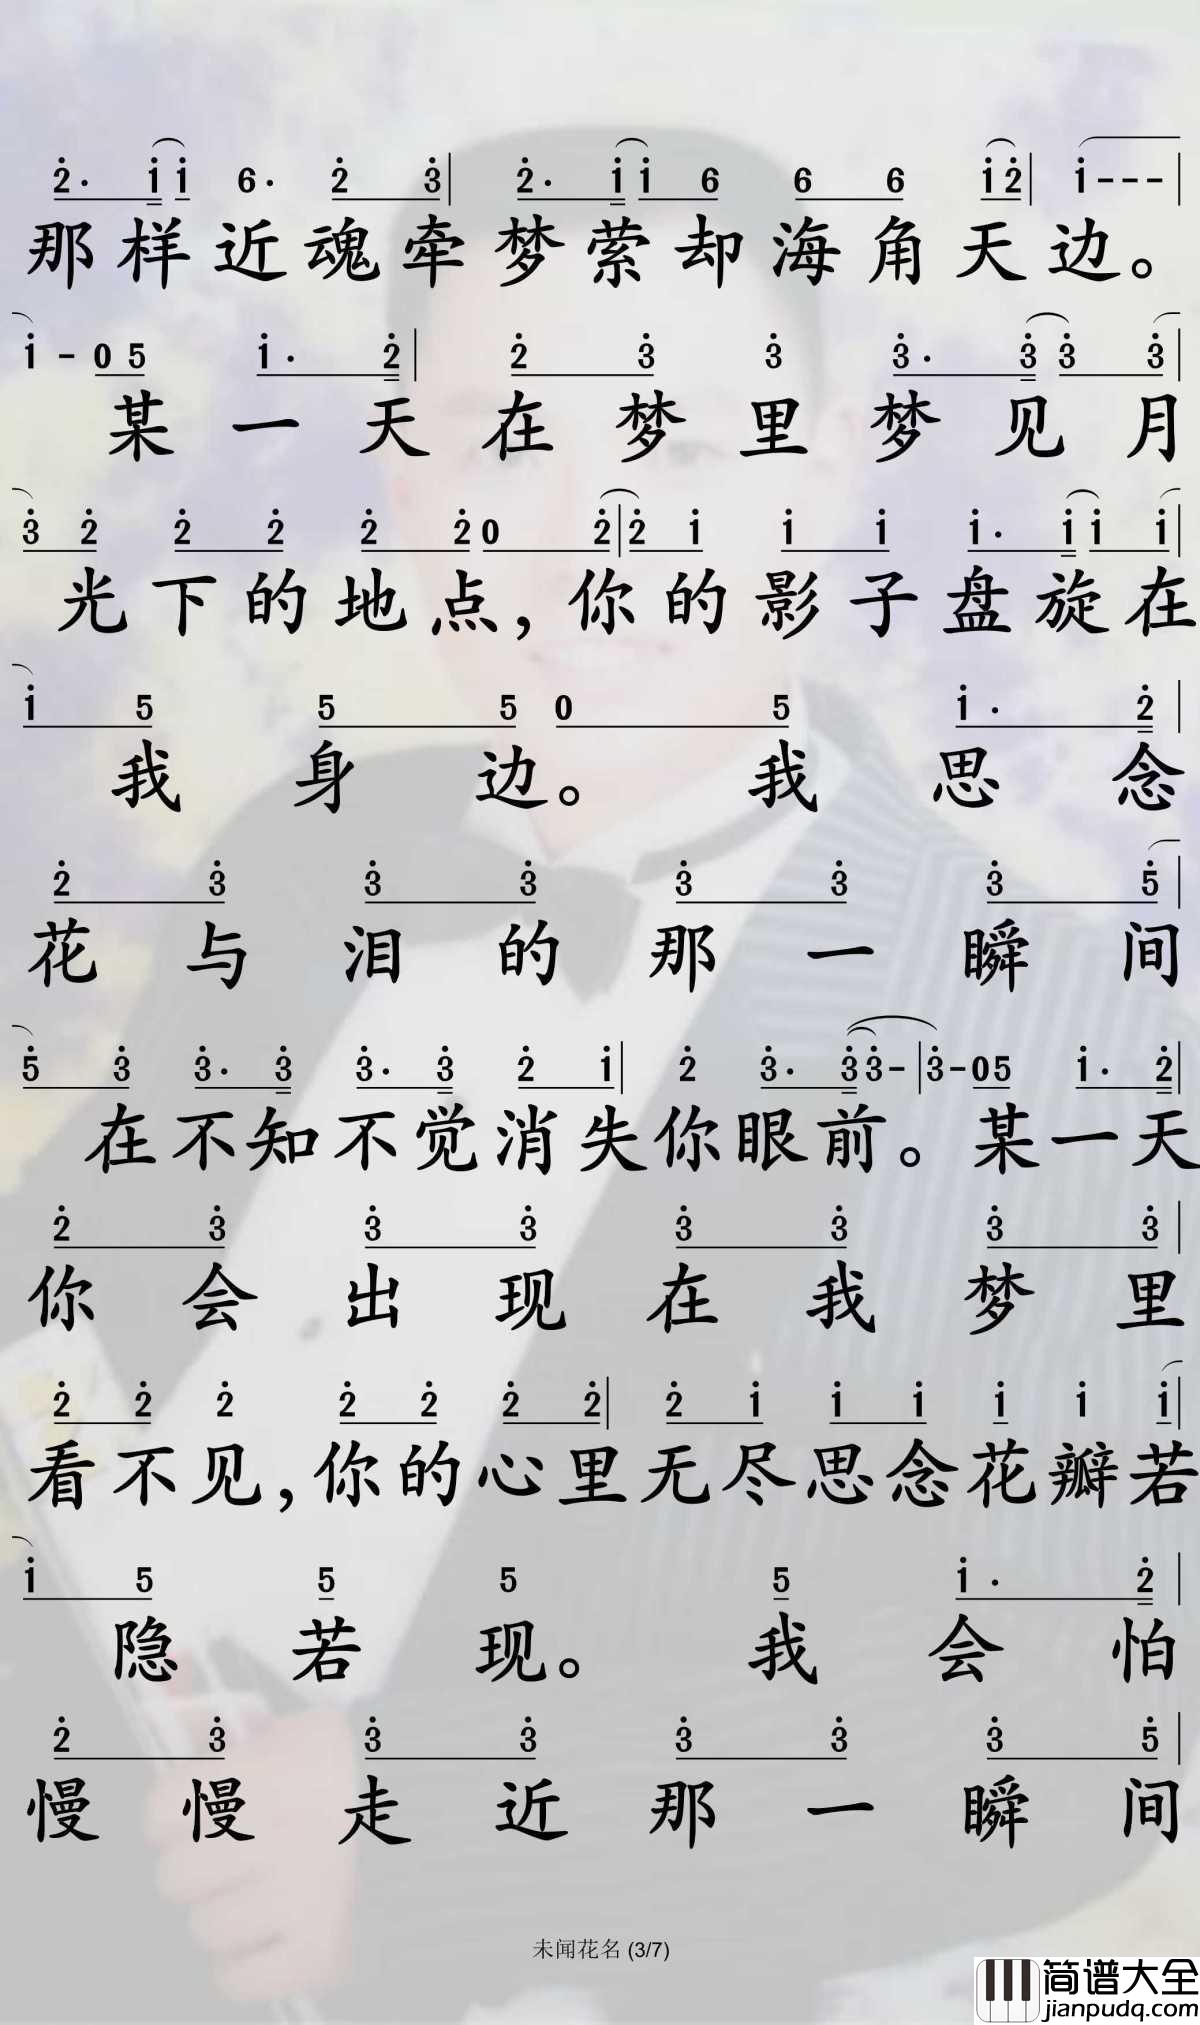 2· 1 1 6· 2 3 | 2· 1 1 6 6 6 1 2 | 1 - - - |
那样近魂牵梦萦却海角天边。
1 - 0 5 1· 2 | 2 3 3 3· 3 3 3 |
某一天在梦里梦见月
3 2 2 2 2 2 0 2 | 2 1 1 1 1· 1 1 1 |
光下的地点,你的影子盘旋在
1 5 5 5 0 5 1· 2 |
我身边。我思念
2 3 3 3 3 3 3 5 |
花与泪的那一瞬间
5 3 3· 3 3· 3 2 1 | 2 3· 3 3 - | 3 - 0 5 1· 2 |
在不知不觉消失你眼前。某一天
2 3 3 3 3 3 3 3 |
你会出现在我梦里
2 2 2 2 2 2 2 | 2 1 1 1 1 1 1 |
看不见,你的心里无尽思念花瓣若
1 5 5 5 5 1· 2 |
隐若现。我会怕
2 3 3 3 3 3 3 5 |
慢慢走近那一瞬间
未闻花名 (3/7)
简谱大全
jianpudq.com